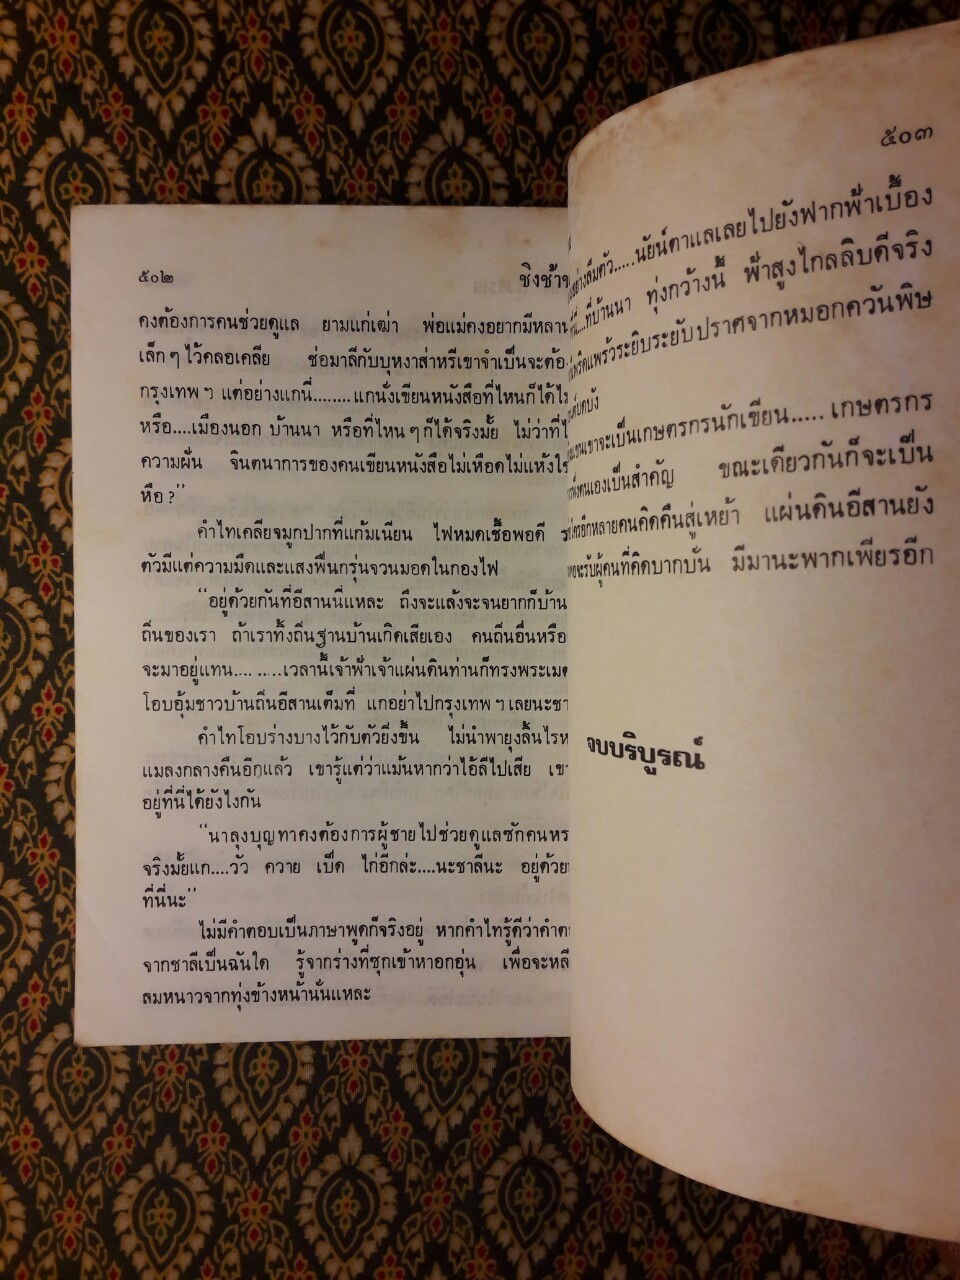 ๕๐๒
ชิงช้า
คงต้องการคนช่วยดูแล ยามแก่เฒ่า พ่อแม่คงอยากมีหลาน
เล็ก ๆ ไว้คลอเคลีย ช่อมาลีกับบุหงาส่าหรีเขาจำเป็นจะต้อ
กรุงเทพ ฯ แต่อย่างแกนี่........แกนั่งเขียนหนังสือที่ไหนก็ได้
หรือ....เมืองนอก บ้านนา หรือที่ไหน ๆ ก็ได้จริงมั้ย ไม่ว่าที่
ความฝัน จินตนาการของคนเขียนหนังสือไม่เหือดไม่แห้ง
หือ ?”
คำไทเคลียจมูกปากที่แก้มเนียน ไฟหมดเชื้อพอดี
ตัวมีแต่ความมืดและแสงฟืนกรุ่นจวนมอดในกองไฟ
“อยู่ด้วยกันที่อีสานนี่แหละ ถึงจะแล้งจะจนยากก็บ้าน
ถิ่นของเรา ถ้าเราทิ้งถิ่นฐานบ้านเกิดเสียเอง คนถิ่นอื่นหรือ
จะมาอยู่แทน.... .....เวลานี้เจ้าฟ้าเจ้าแผ่นดินท่านก็ทรงพระเมต
โอบอุ้มชาวบ้านถิ่นอีสานเต็มที่ แกอย่าไปกรุงเทพ ฯ เลยนะชา
คำไทโอบร่างบางไว้กับตัวยิ่งขึ้น ไม่นำพายุงลิ้นไรห
แมลงกลางคืนอีกแล้ว เขารู้แต่ว่าแม้นหากว่าไอ้ลีไปเสีย เขา
อยู่ที่นี่ได้ยังไงกัน
“นาลุงบุญทาคงต้องการผู้ชายไปช่วยดูแลซักคนหร
จริงมั้ยแก....วัว ควาย เป็ด ไก่อีกล่ะ....นะชาลีนะ อยู่ด้วย
ที่นี่นะ”
ไม่มีคำตอบเป็นภาษาพูดก็จริงอยู่ หากคำไทรู้ดีว่าคำต
จากชาลีเป็นฉันใด รู้จากร่างที่ซุกเข้าหาอกอุ่น เพื่อจะหลี
ลมหนาวจากทุ่งข้างหน้านั่นแหละ
๕๐๓
อย่างลืมตัว.....นัยน์ตาแลเลยไปยังฟากฟ้าเบื้อง
ที่บ้านนา ทุ่งกว้างนี้ ฟ้าสูงไกลลิบดีจริง
แพร้วระยิบระยับปราศจากหมอกควันพิษ
บดบัง
เขาจะเป็นเกษตรกรนักเขียน..... เกษตรกร
ตนเองเป็นสำคัญ ขณะเดียวกันก็จะเป็น
อีกหลายคนคิดคืนสู่เหย้า แผ่นดินอีสานยัง
จะรับผู้คนที่คิดบากบั่น มีมานะพากเพียรอีก
จบบริบูรณ์